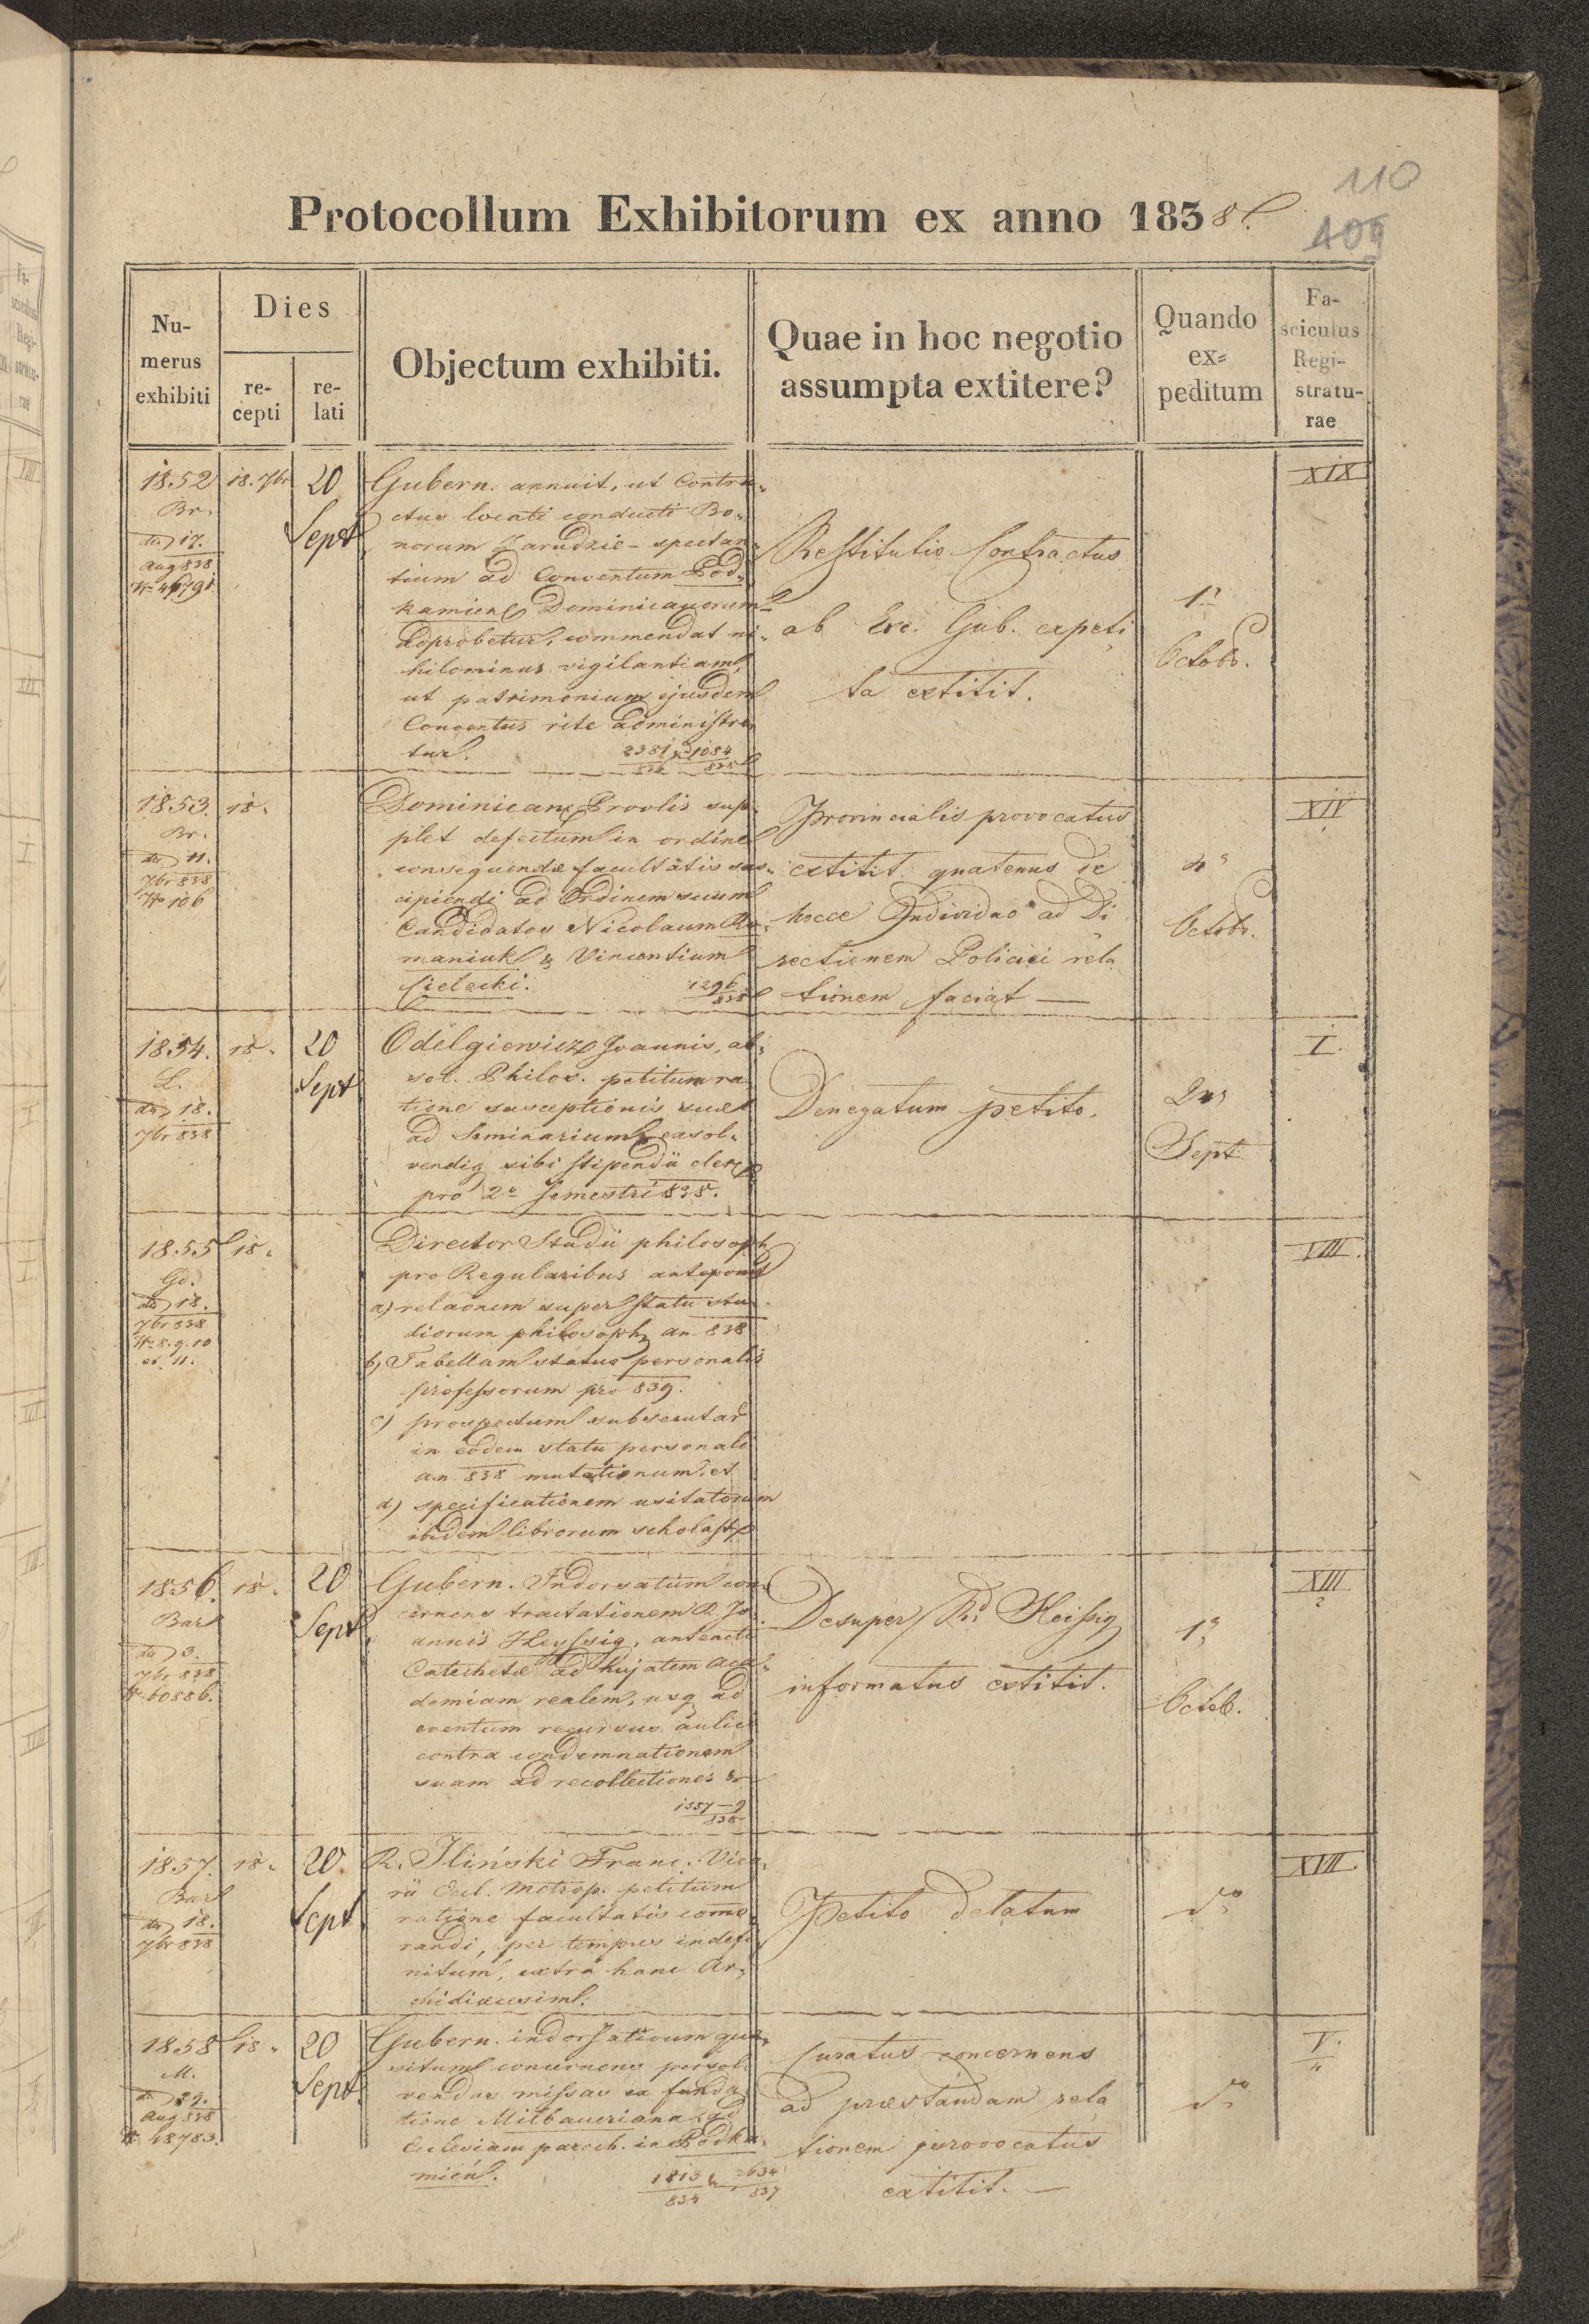 110
109
Protocollum Exhibitorum ex anno 1838.
Nu-
merus
exhibiti
Dies
re-
cepti
re-
lati
Objectum exhibiti.
Quae in hoc negotio
assumpta extitere?
Quando
ex=
peditum
Fa-
sciculus
Regi-
stratu-
rae
1852
Br.
dto 17.
Aug 838
18. 7br
20
Sept
Gubern. annuit, ut Contra-
ctus locati conducti Bo-
norum Zarudzie - spectan-
tium ad Conventum Pod-
kamien Dominicanorum
adprobetur, commendat ni-
hilominus vigilantiam,
ut patrimonium ejusdem
Conventus rite administre-
tur.
Restitutio Contractus
ab Exc. Gub. expeti
ta extitit.
1
Octobr.
XIX
1853.
Br.
dto 11.
7br 838
No 106
18.
Dominican Provlis sup-
plet defectum in ordine
consequendae facultatis sus-
cipiendi ad Ordinem suum
Candidatos Nicolaum Ro-
maniuk & Vincentium
Sielecki.
1296
838
Provincialis provocatus
extitit quatenus de
hocce Individuo ad Di
rectionem Policiei rela
tionem faciat —
4
Octobr.
XIV
1854.
L.
dto 18.
7br 838
18.
20
Sept
Odelgiewicz Joannis, ab-
sol. Philos. petitum ra-
tione susceptionis suae
ad Seminarium exsol-
vendiq sibi stipendii cler
pro 2o Semestri 838.
Denegatum petito.
Sept
I.
1855
Gd.
dto 18.
7br 838
No 8. 9. 10
et 11.
18.
Director Studii philosoph
pro Regularibus anteponit
a) relaonem super statu stu-
diorum philosoph an 838
b) Tabellam status personalis
professorum pro 839.
c) prospectum subsecutar
in eodem statu personali
an 838 mutationum, et
d) specificationem usitatorum
ibidem librorum scholast
VIII.
1856.
Bar
dto 3.
7br 838
No 60886.
18.
20
Sept
Gubern. Indorsatum con-
cernens tractationem R. Jo-
annis Heyssig, anteacti
Catechetae ad hujatem Aca-
demiam realem, usq ad
eventum recursus aulici
contra condemnationem
suam ad recollectiones &
1557-9
838
Desuper Rd Heissig
informatus extitit.
1
Octob.
XIII
2
1857.
Bar
dto 18.
7br 838
18.
20.
Sept
R. Iliński Franc. Vica-
rii Eccl. Metrop. petitum
ratione facultatis como-
randi, per tempus indefi-
nitum, extra hanc Ar-
chidiaecesim.
Petito delatum
do
XVII.
1858
M.
dto 29.
Aug 838
No 48783.
18.
20
Sept.
Gubern. indorsativum quae-
situm concernens persol-
vendas missas ex funda-
tione Milbaueriana ad
Ecclesiam paroch. in Podka-
mień.
1813 & 2634
834 837
Curatus concernens
ad praestandam rela
tionem provocatus
extitit. —
do
V.
4